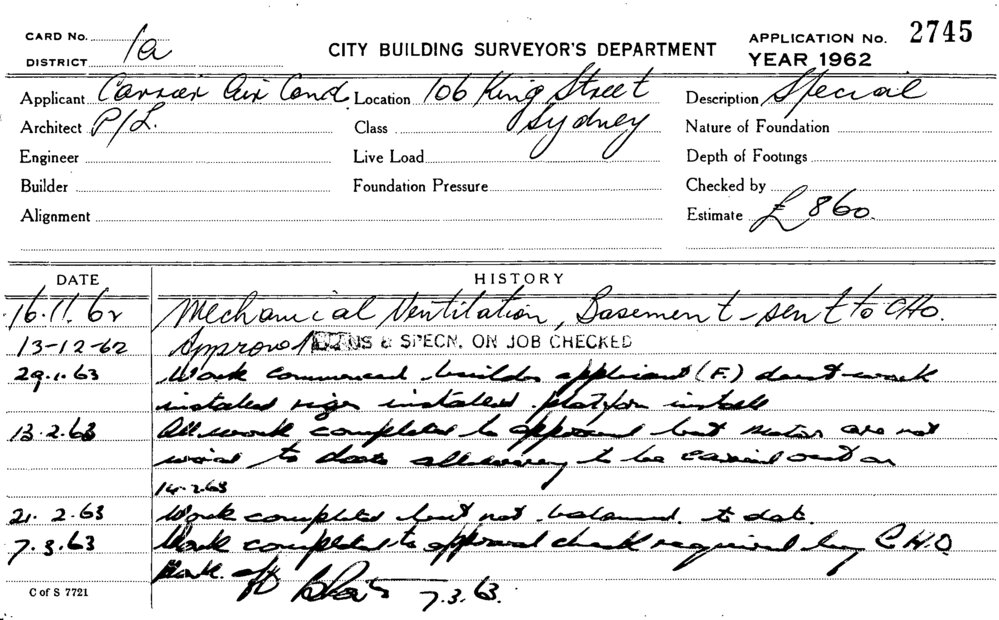 CARD No. 1a
DISTRICT
CITY BUILDING SURVEYOR'S DEPARTMENT
APPLICATION No. 2745
YEAR 1962
Applicant Carrier Air Cond. Location 106 King Street Description Special
Architect P/L. Class Sydney Nature of Foundation
Engineer Live Load Depth of Footings
Builder Foundation Pressure Checked by
Alignment Estimate £860.
DATE HISTORY
16.11.62 Mechanical Ventilation, Basement - sent to CHO.
13-12-62 Approved NS & SPECN. ON JOB CHECKED
29.1.63 Work commenced builder applicant (F.) duct work
installed installed platform
13.2.63 All work completed to approval but motors are not
to date to be carried out on
14.2.63
21.2.63 Work completed but not balanced to date.
7.3.63 Work completed to approval check required by C.H.O.
7.3.63.
C of S 7721